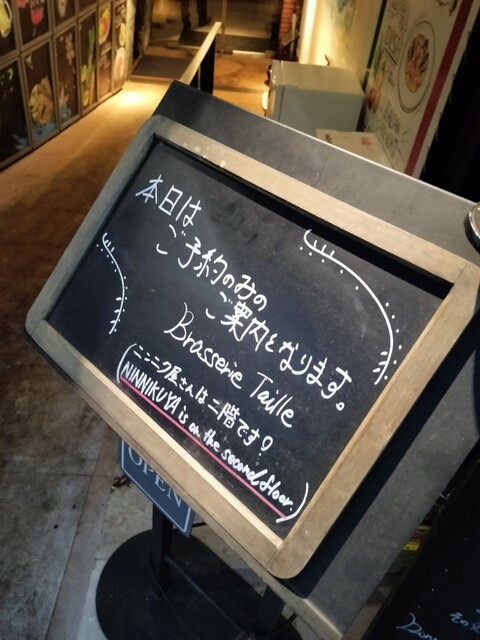 本日は
ご予約のみの
ご案内となります。
Brasserie Taille
(ニンニク屋さんは二階です!
NINNIKUYA is on the second floor.)
OPEN